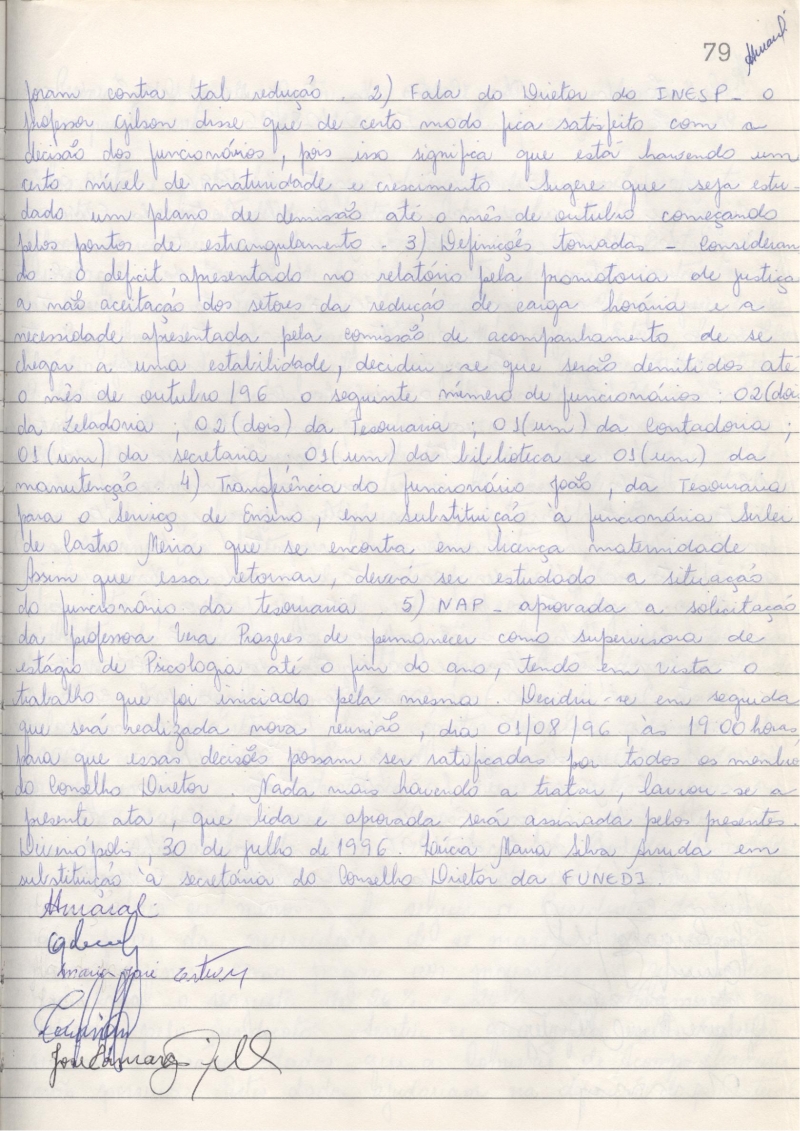 79 Amaral
foram contra tal redução. 2) Fala do Diretor do INESP - o
professor Gilson disse que de certo modo fica satisfeito com a
decisão dos funcionários, pois isso significa que está havendo um
certo nível de maturidade e crescimento. Sugere que seja estu-
dado um plano de demissão até o mês de outubro começando
pelos pontos de estrangulamento. 3) Definições tomadas - Consideran
do: o deficit apresentado no relatório pela promotoria de justiça
a não aceitação dos setores da redução de carga horária e a
necessidade apresentada pela comissão de acompanhamento de se
chegar a uma estabilidade, decidiu-se que serão demitidos até
o mês de outubro/96 o seguinte número de funcionários: 02(dois
da Zeladoria; 02(dois) da Tesouraria; 01(um) da Contadoria;
01(um) da secretaria 01(um) da biblioteca e 01(um) da
manutenção. 4) Transferência do funcionário João, da Tesouraria
para o Serviço de Ensino, em substituição à funcionária Sirlei
de Castro Meira que se encontra em licença maternidade
Assim que essa retornar, deverá ser estudado a situação
do funcionário da tesouraria. 5) NAP - aprovada a solicitação
da professora Vera Prazeres de permanecer como supervisora de
estágio de Psicologia até o fim do ano, tendo em vista o
trabalho que foi iniciado pela mesma. Decidiu-se em seguida
que será realizada nova reunião, dia 01/08/96, às 19:00 horas,
para que essas decisões possam ser ratificadas por todos os membro
do Conselho Diretor. Nada mais havendo a tratar, lavrou-se a
presente ata, que lida e aprovada será assinada pelos presentes.
Divinópolis, 30 de julho de 1996. Lúcia Maria Silva Arruda em
substituição à secretária do Conselho Diretor da FUNEDI.
Amaral
Maria José
José